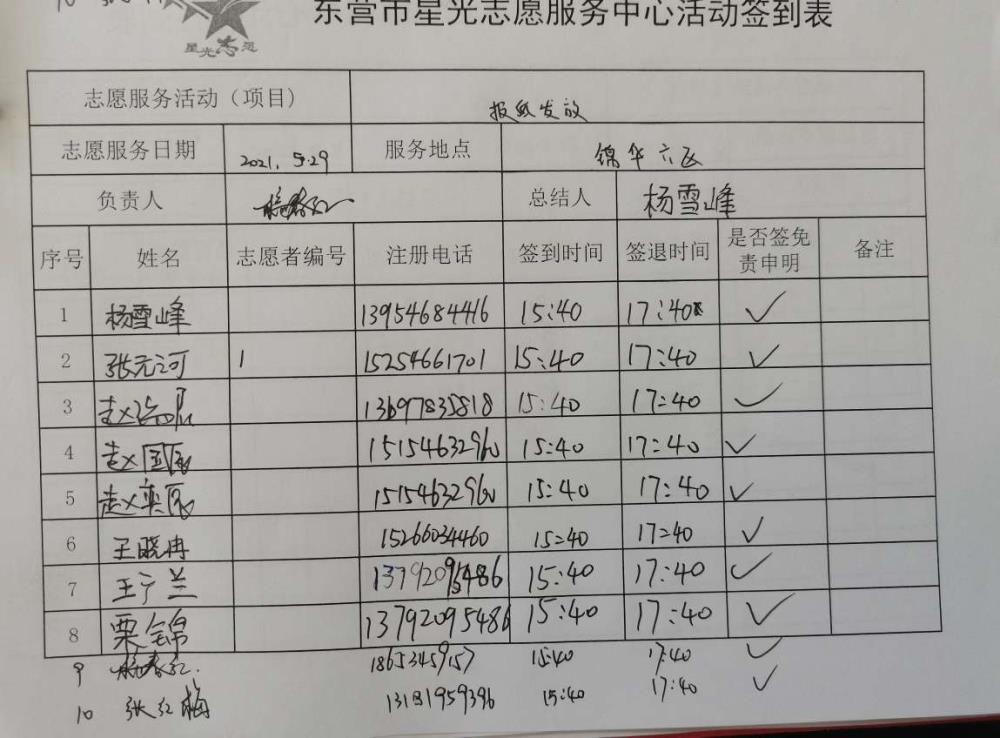 东营市星光志愿服务中心活动签到表
星光志愿
志愿服务活动（项目） 报纸发放
志愿服务日期 2021.5.29 服务地点 锦华六区
负责人 总结人 杨雪峰
序号 姓名 志愿者编号 注册电话 签到时间 签退时间 是否签免责申明 备注
1 杨雪峰 13954684416 15:40 17:40 ✓
2 张元珂 1 15254661701 15:40 17:40 ✓
3 赵 13697835818 15:40 17:40 ✓
4 赵国辰 15154632960 15:40 17:40 ✓
5 赵奕辰 15154632960 15:40 17:40 ✓
6 王晓冉 15266034460 15:40 17:40 ✓
7 王宁兰 13792095486 15:40 17:40 ✓
8 栗锦 13792095486 15:40 17:40 ✓
9 杨春红 18653459157 15:40 17:40 ✓
10 张红梅 15:40 17:40 ✓